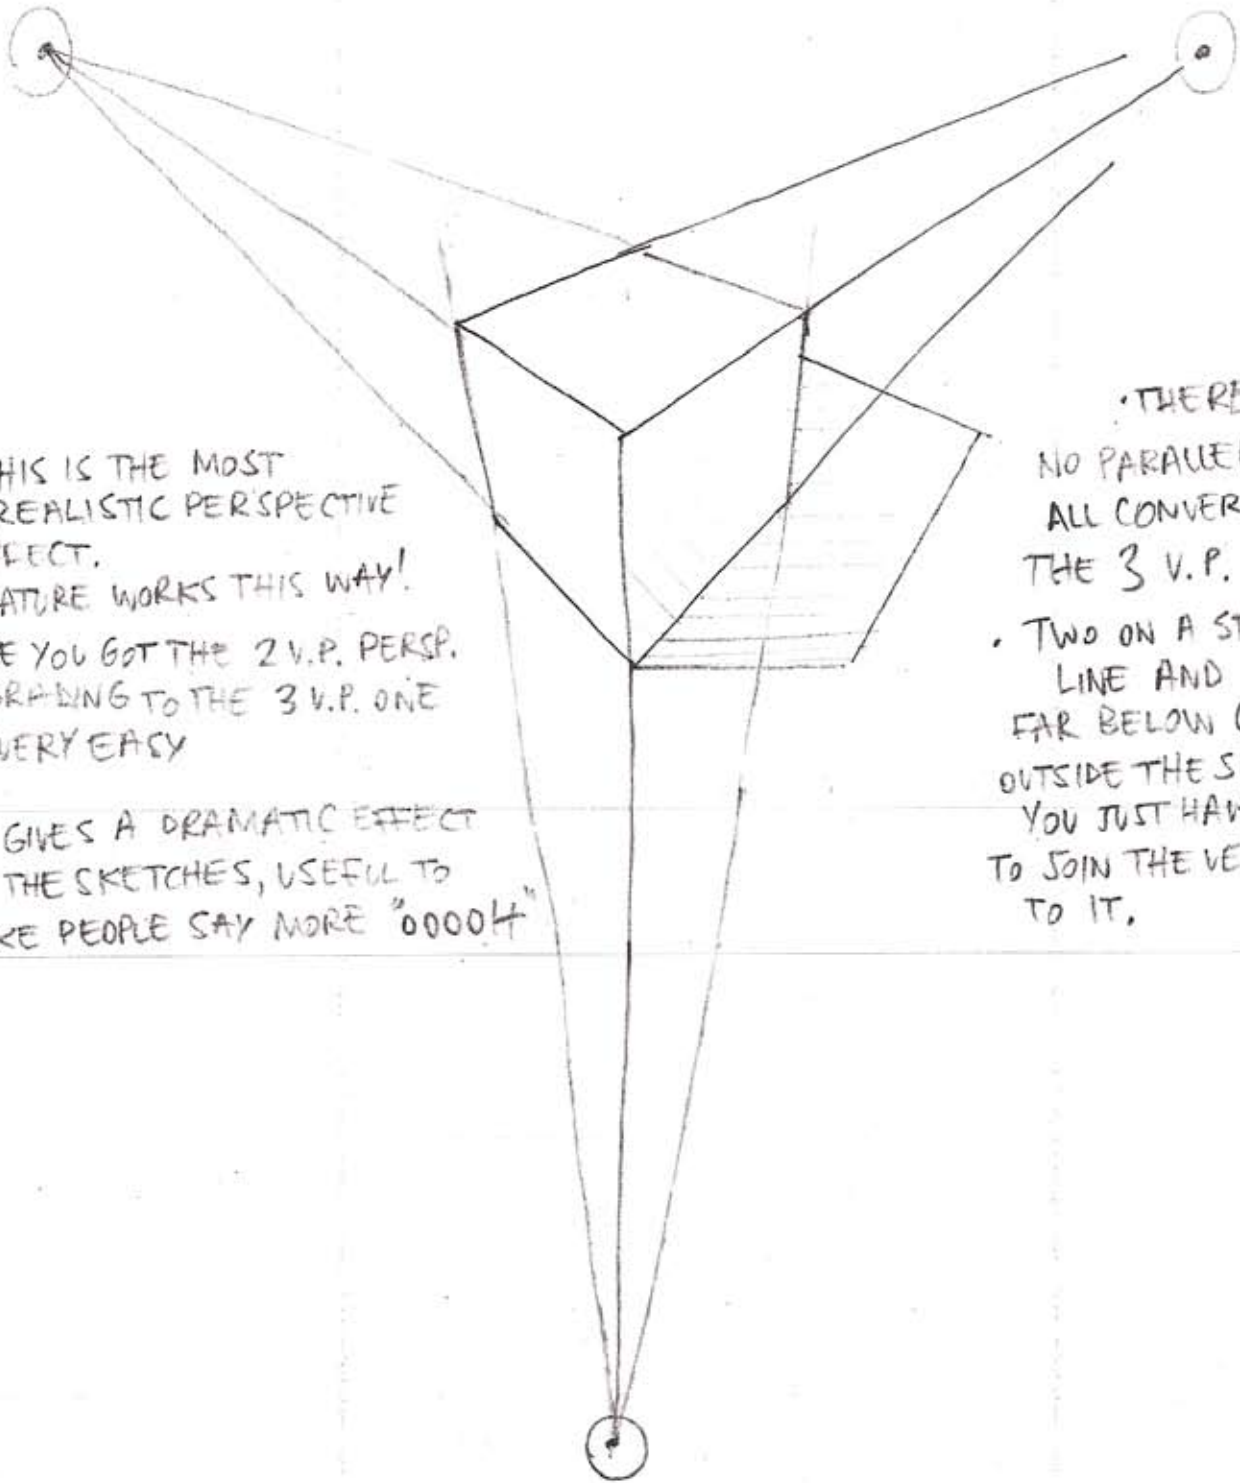 HIS IS THE MOST
REALISTIC PERSPECTIVE
FECT.
ATURE WORKS THIS WAY!
E YOU GOT THE 2 V.P. PERSP.
GRADING TO THE 3 V.P. ONE
VERY EASY
GIVES A DRAMATIC EFFECT
THE SKETCHES, USEFUL TO
KE PEOPLE SAY MORE "OOOOH"
• THERE
NO PARALLEL
ALL CONVER
THE 3 V.P.
• TWO ON A ST
LINE AND
FAR BELOW
OUTSIDE THE S
YOU JUST HAV
TO JOIN THE VE
TO IT.